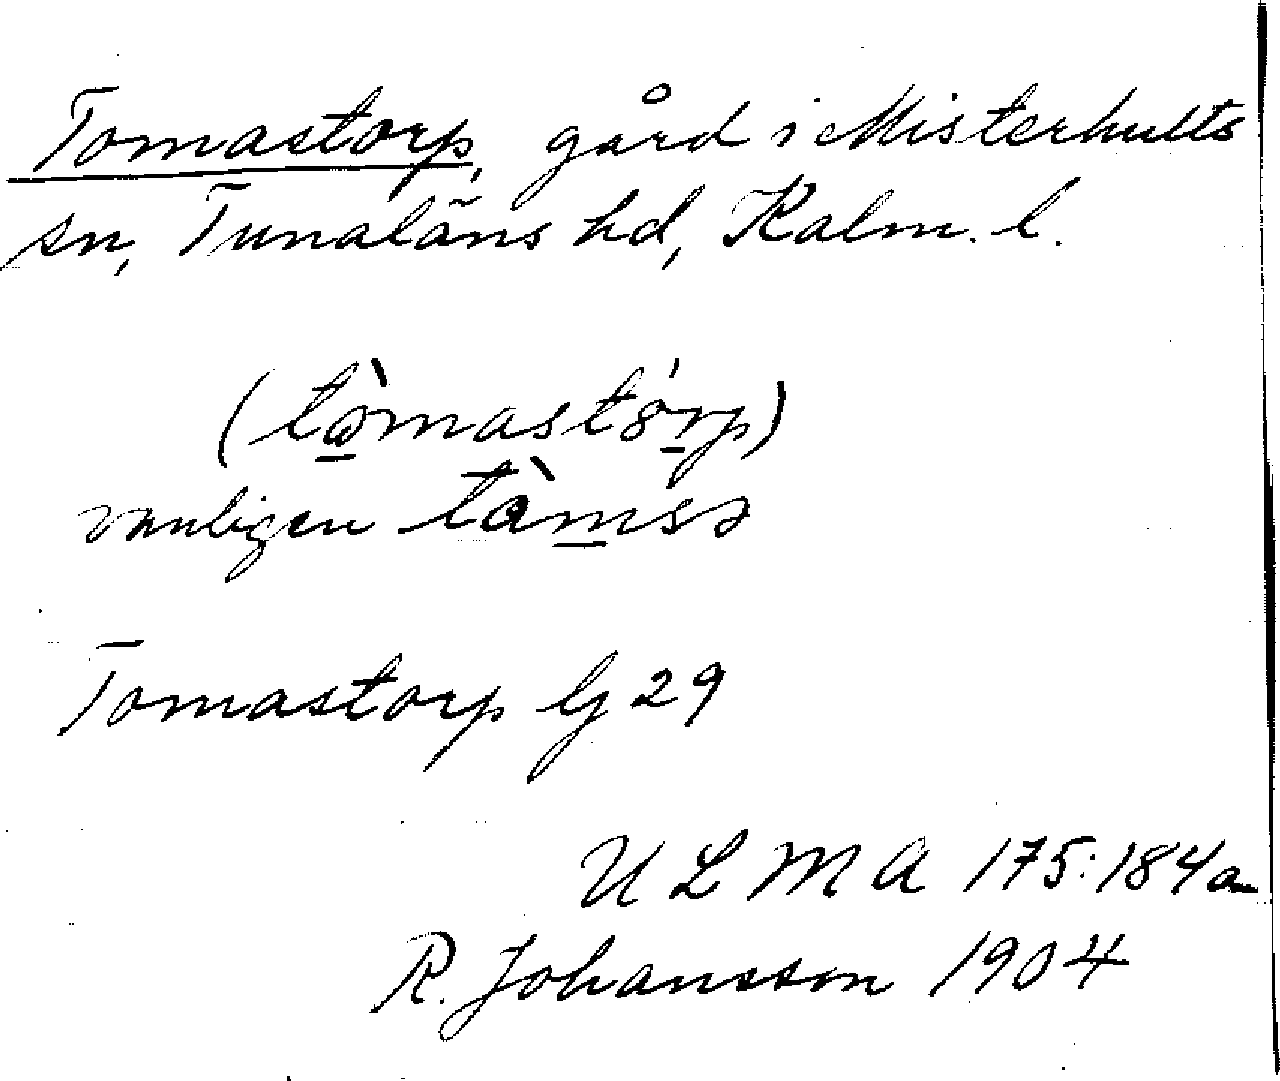 Tomastorp, gård i Misterhults
sn, Tunaläns hd, Kalm. l.
(tòmastórp)
vanligen tàmsə
Tomastorp lj 29
ULMA 175:184a
R. Johansson 1904